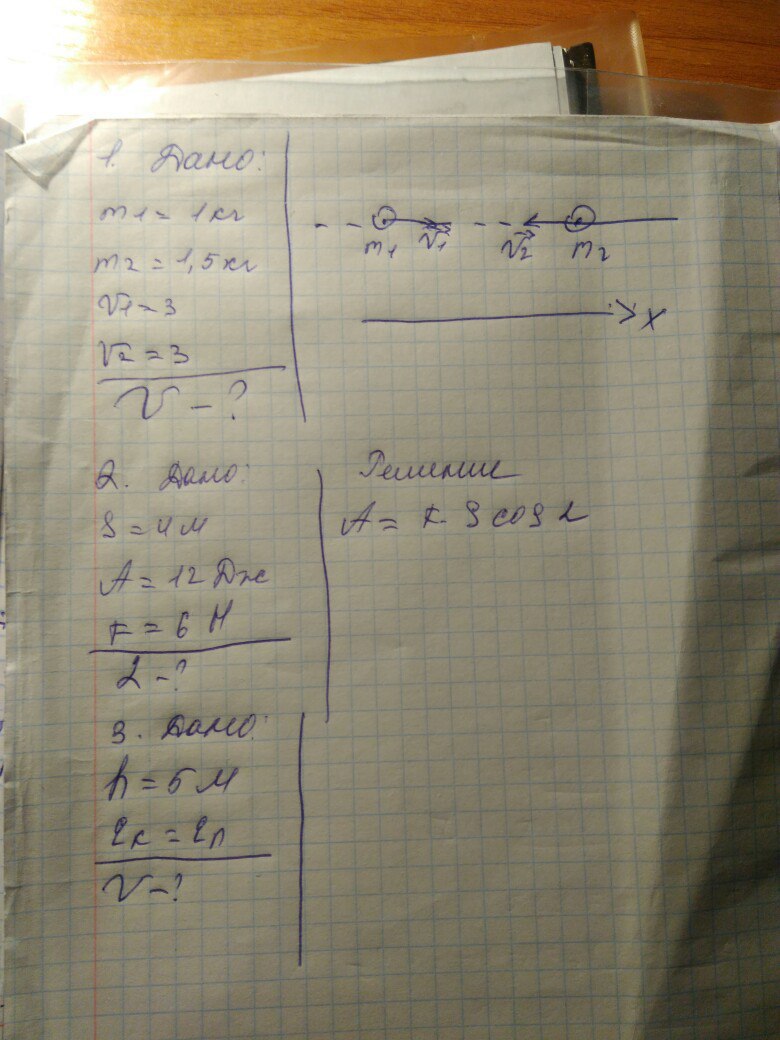 1. Дано:
m1 = 1кг
m2 = 1,5кг
V1 = 3
V2 = 3
V - ?
m1 V1 V2 m2
X
2. Дано:
S = 4 м
A = 12 Дж
F = 6 Н
α - ?
Решение
A = F · S cos α
3. Дано:
h = 5 м
Eк = Eп
V - ?